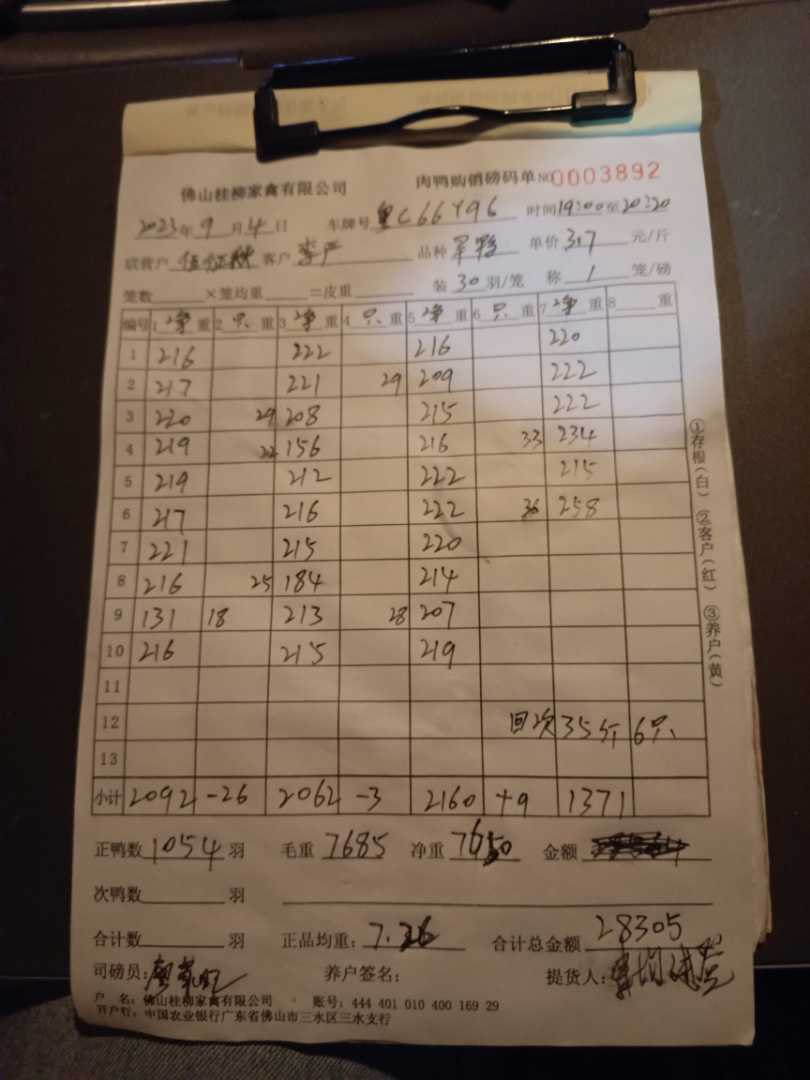 佛山桂柳家禽有限公司 肉鸭购销磅码单 NO 0003892
2023年 9 月 4 日 车牌号 粤C66Y96 时间 19:00至20:20
联营户 客户 李严 品种 单价 3.7 元/斤
笼数 ×笼均重 =皮重 装 30 羽/笼 称 1 笼/磅
编号 1 净 重 2 只 重 3 净 重 4 只 重 5 净 重 6 只 重 7 净 重 8 重
1 216 222 216 220
2 217 221 29 209 222
3 220 29 208 215 222
4 219 22 156 216 33 234
5 219 212 222 215
6 217 216 222 36 258
7 221 215 220
8 216 25 184 214
9 131 18 213 28 207
10 216 215 219
11
12 回次 35斤 6只
13
小计 2092 -26 2062 -3 2160 +9 1371
正鸭数 1054 羽 毛重 7685 净重 7650 金额
次鸭数 羽
合计数 羽 正品均重: 7.26 合计总金额 28305
司磅员: 养户签名: 提货人:
户 名: 佛山桂柳家禽有限公司 账号: 444 401 010 400 169 29
开户行: 中国农业银行广东省佛山市三水区三水支行
①存根(白) ②客户(红) ③养户(黄)